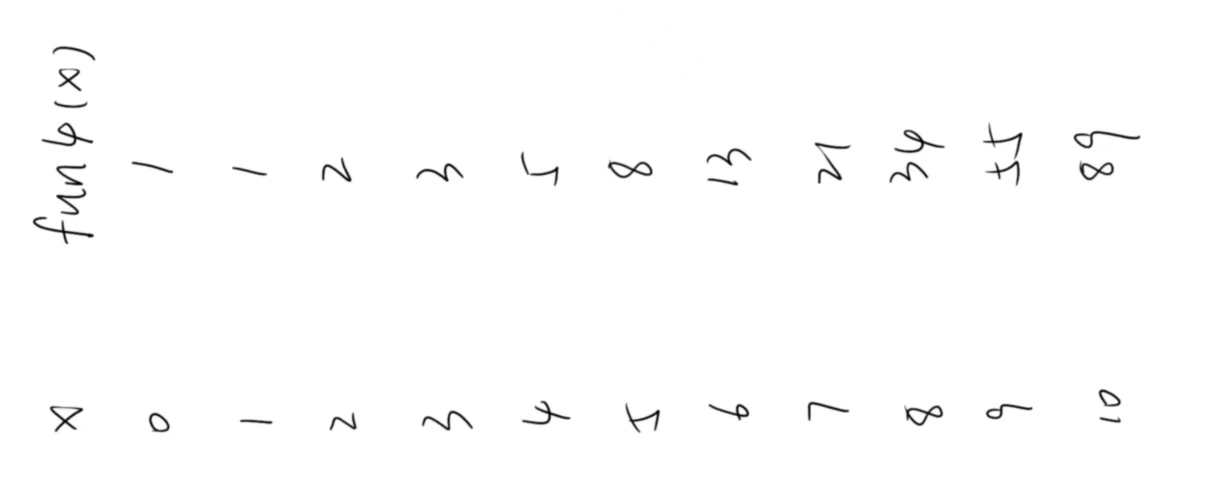 x fun4(x)
0 1
1 1
2 2
3 3
4 5
5 8
6 13
7 21
8 34
9 55
10 89